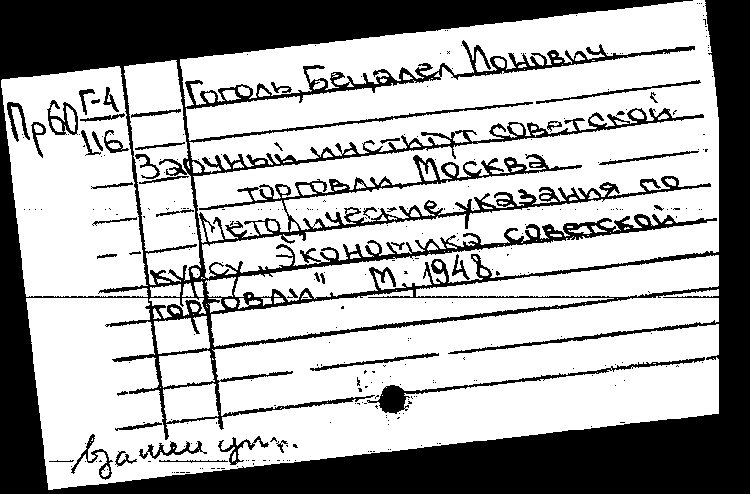 Пр60 Г-4
116
Гоголь, Бецалел Ионович.
Заочный институт советской
торговли. Москва.
Методические указания по
курсу „Экономика советской
торговли". М., 1948.
взамен утр.